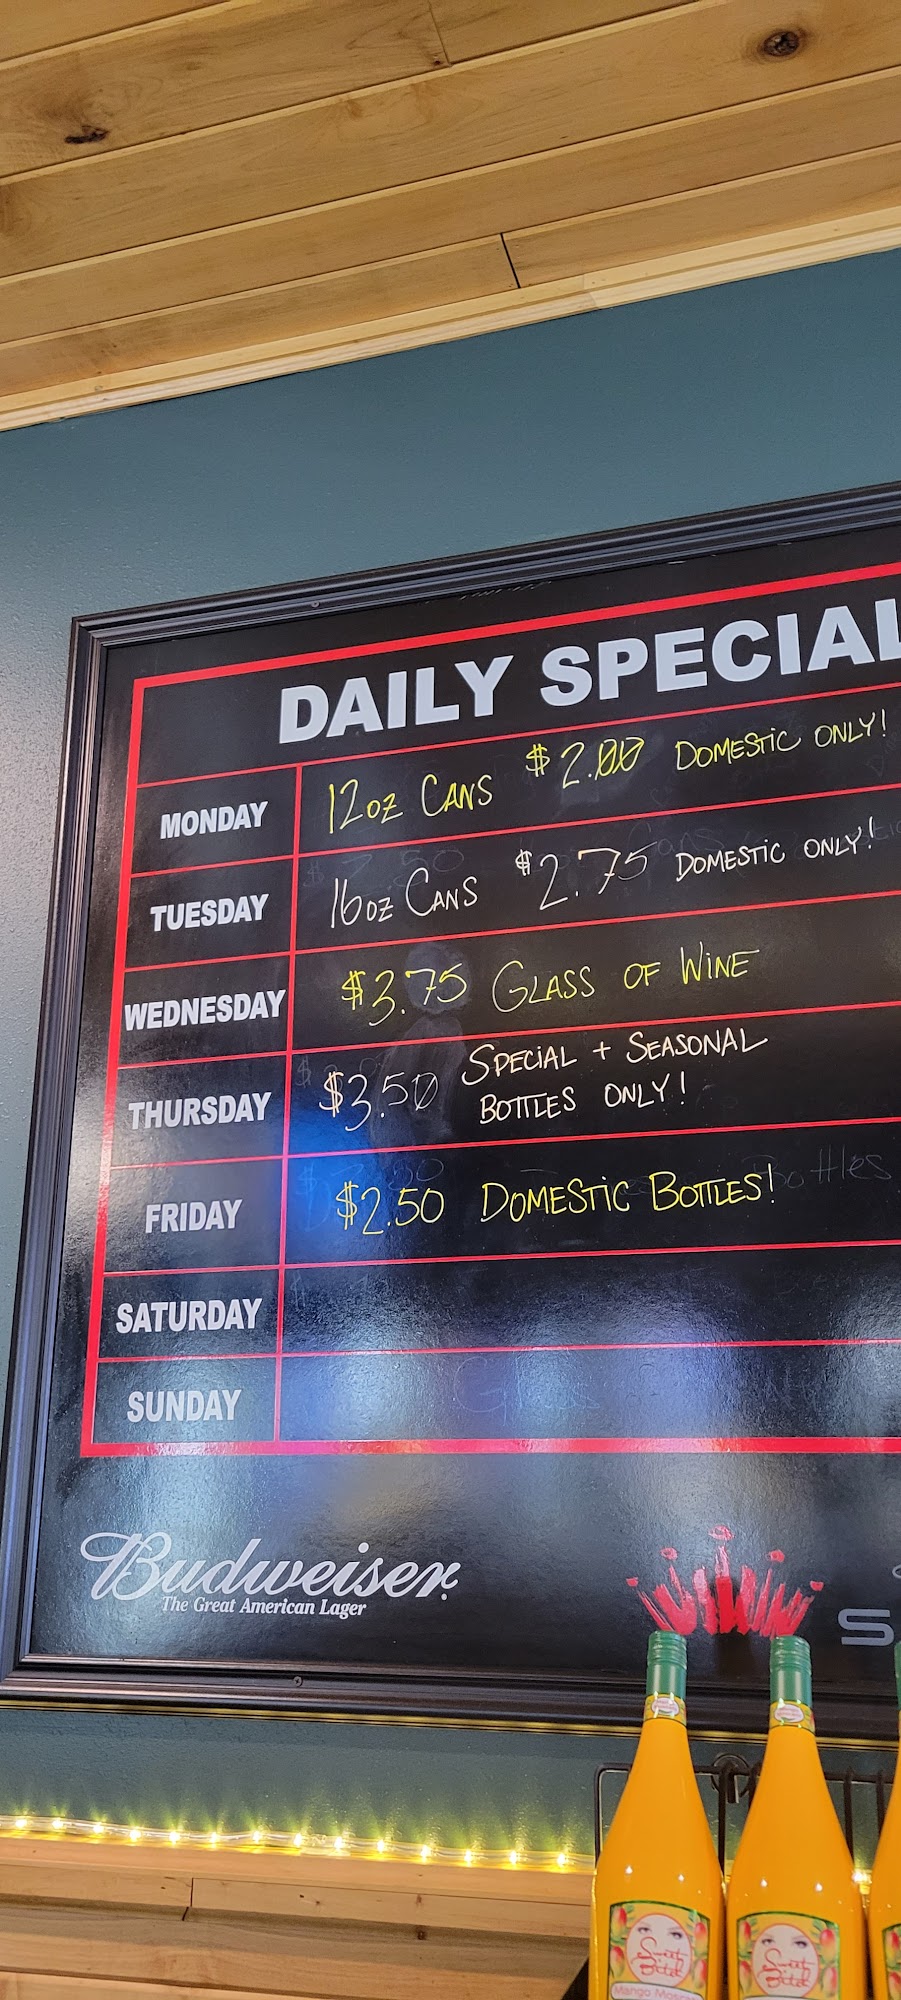 DAILY SPECIAL
MONDAY 12oz CANS $2.00 DOMESTIC ONLY!
TUESDAY 16oz CANS $2.75 DOMESTIC ONLY!
WEDNESDAY $3.75 GLASS OF WINE
THURSDAY $3.50 SPECIAL + SEASONAL
BOTTLES ONLY!
FRIDAY $2.50 DOMESTIC BOTTLES!
SATURDAY
SUNDAY
Budweiser
The Great American Lager
Sweet
Bitch
Sweet
Bitch